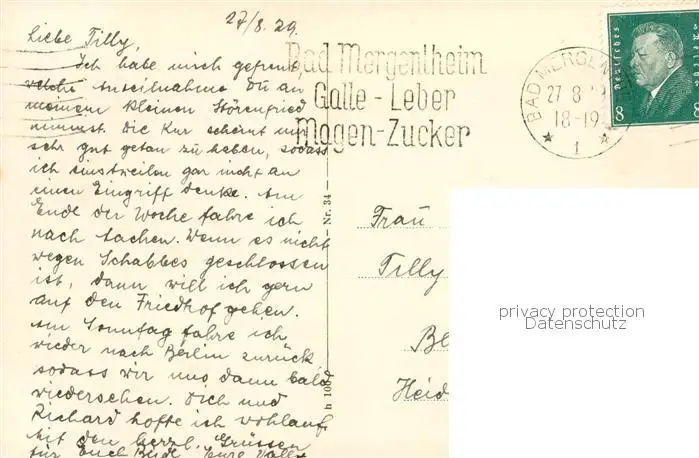 27/8.29.
Liebe Tilly,
Ich habe mich gefreut,
welche Anteilnahme Du an
meinem kleinen Störenfried
nimmst. Die Kur scheint mir
sehr gut getan zu haben, sodass
ich einstweilen gar nicht an
einen Eingriff denke. Am
Ende der Woche fahre ich
nach Aachen. Wenn es nicht
wegen Schabbes geschlossen
ist, dann will ich gern
auf den Friedhof gehen.
Am Sonntag fahre ich
wieder nach Berlin zurück
sodass wir uns dann bald
wiedersehen. Dich und
Richard hoffe ich wohlauf.
Mit den herzl. Grüssen
für Euch Beide Eure
Bad Mergentheim
Galle-Leber
Magen-Zucker
BAD MERGEN
27 8
18-19
1
Deutsches
8 8
Nr. 34
Frau
Tilly
Heid
privacy protection
Datenschutz